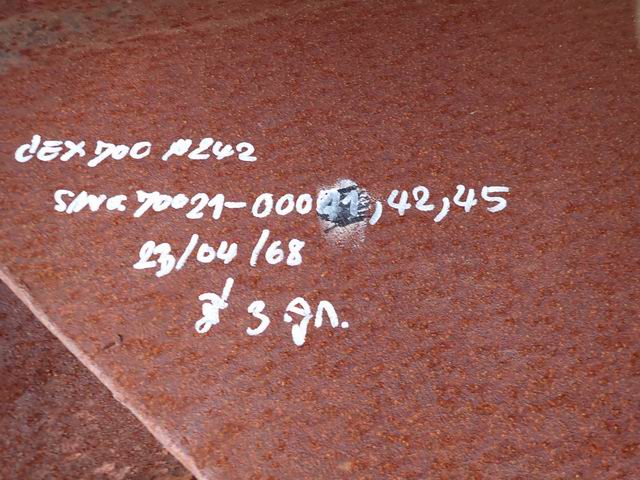 CEX700 #242
S/No. 70021-000 ,42,45
23/04/68
3 ลูก.